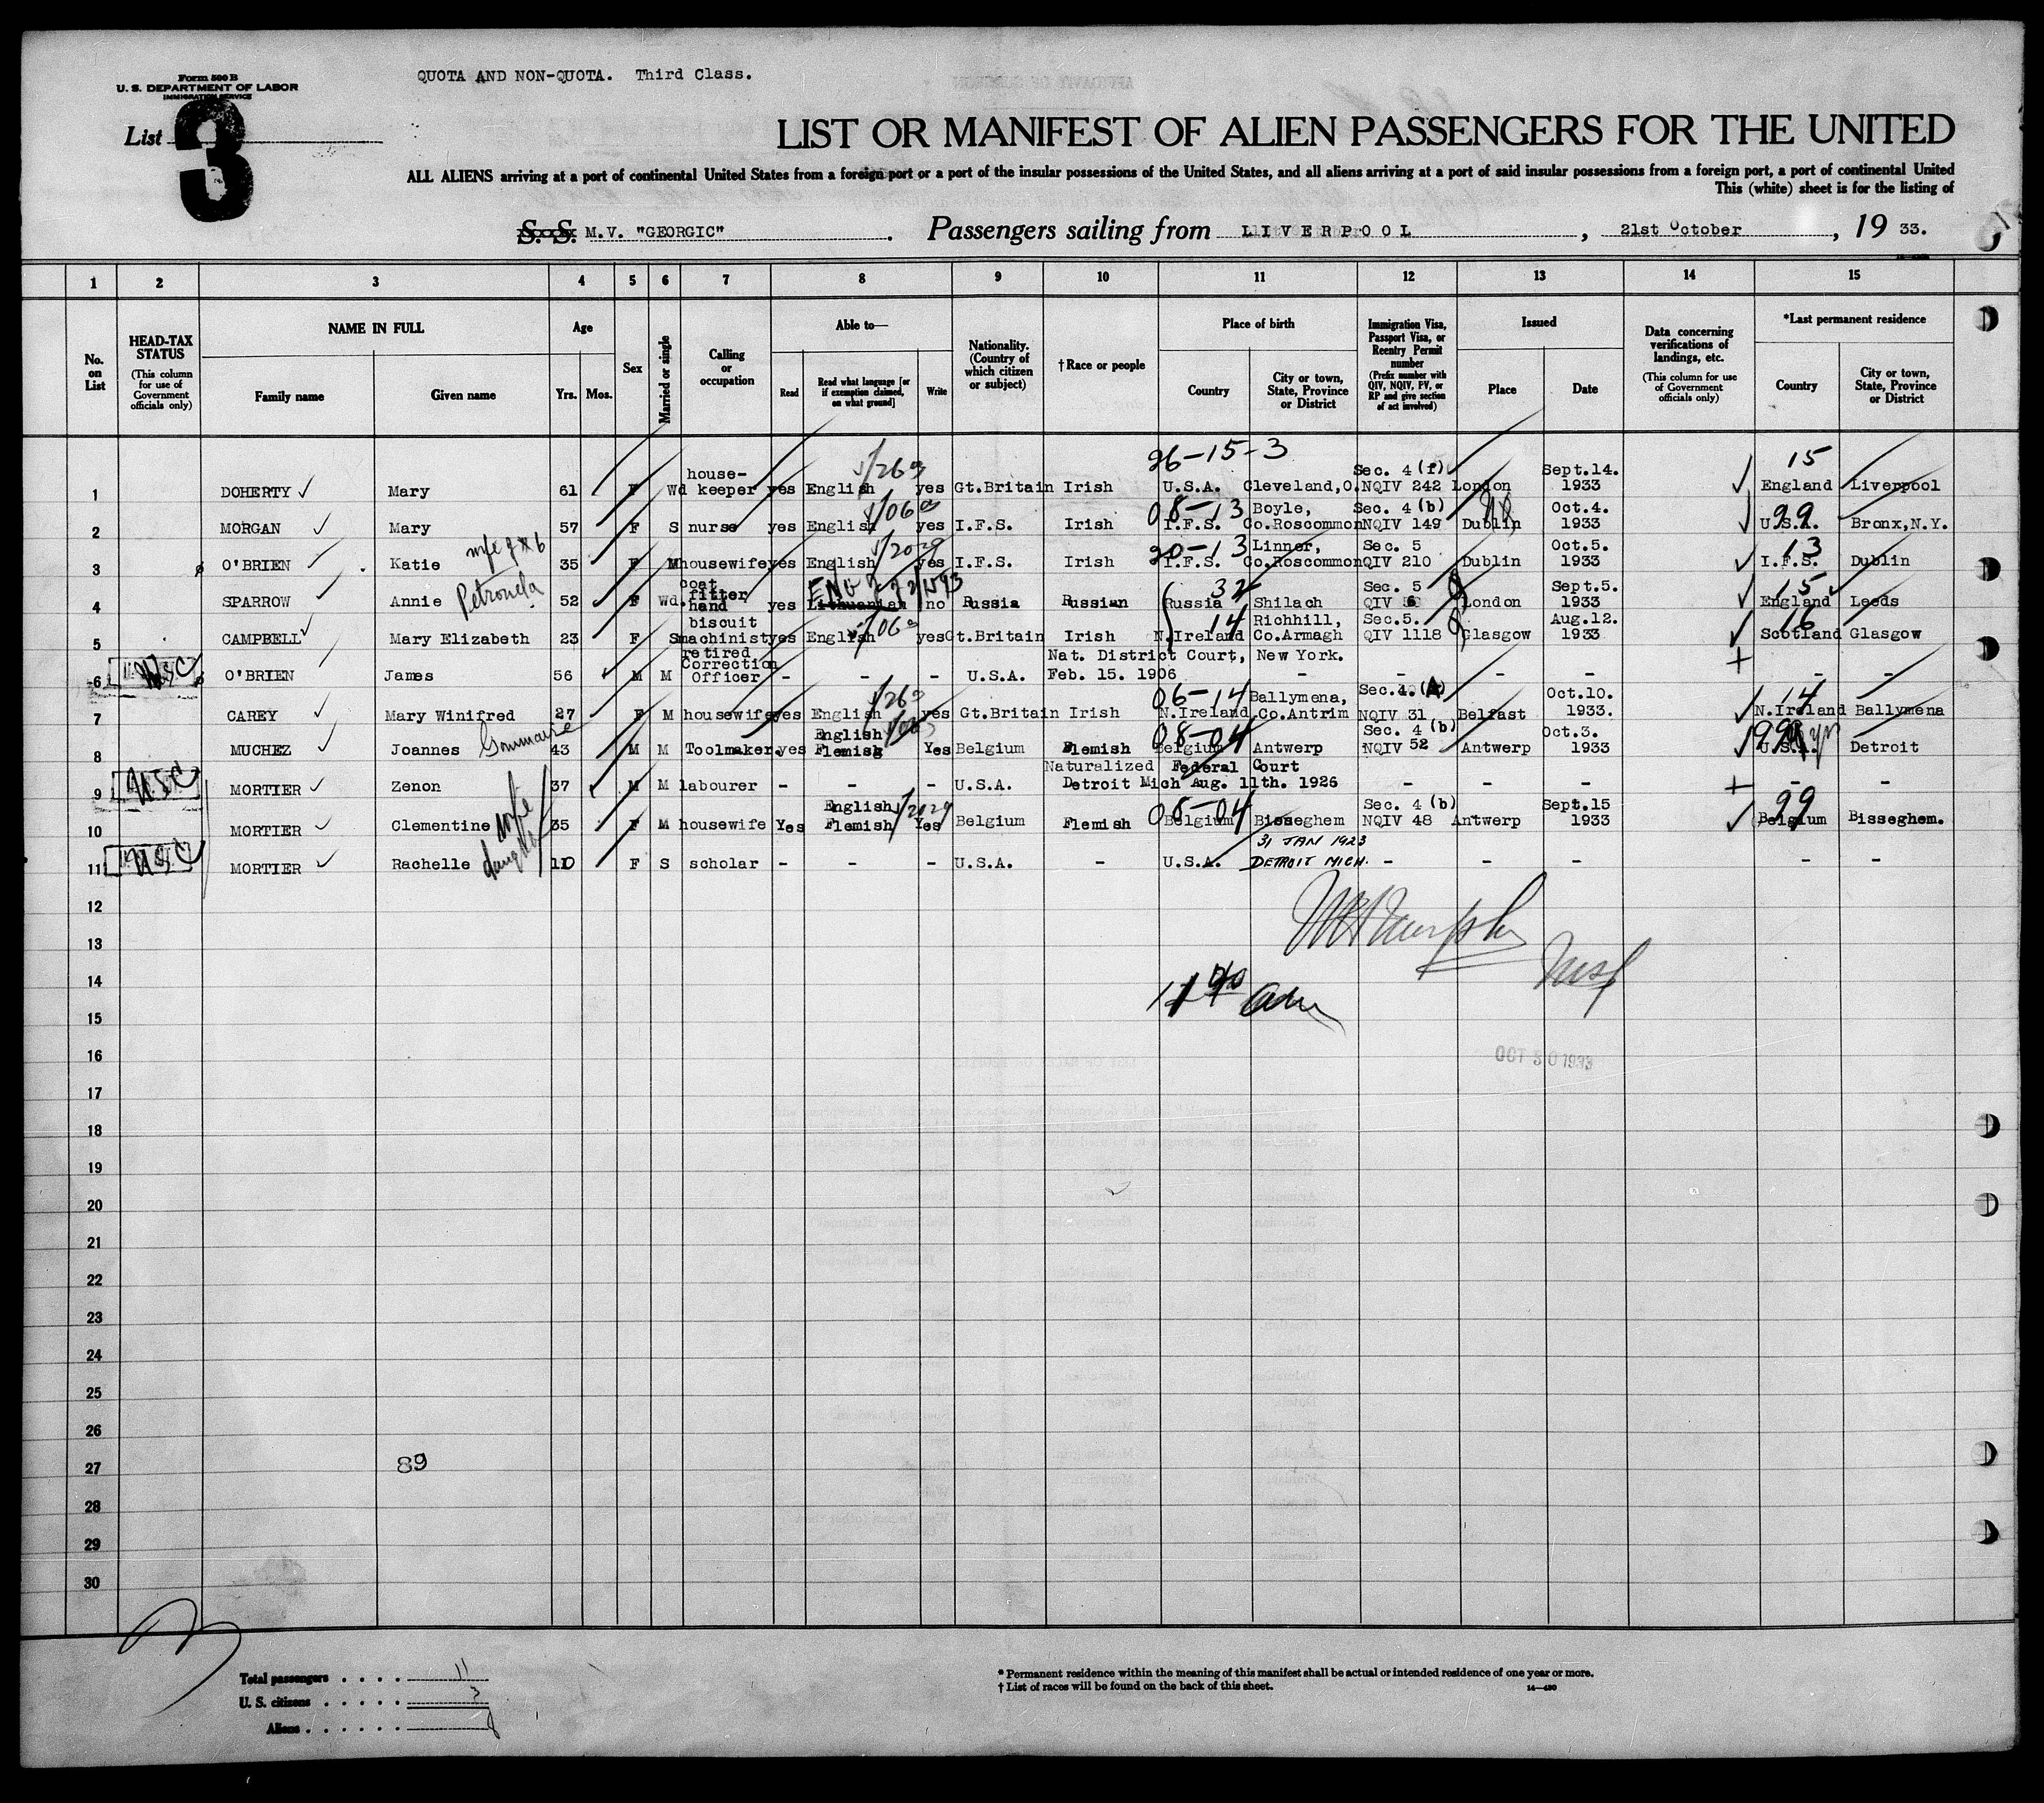 Form 500 B
U. S. DEPARTMENT OF LABOR
IMMIGRATION SERVICE
QUOTA AND NON-QUOTA. Third Class.
List 3
LIST OR MANIFEST OF ALIEN PASSENGERS FOR THE UNITED
ALL ALIENS arriving at a port of continental United States from a foreign port or a port of the insular possessions of the United States, and all aliens arriving at a port of said insular possessions from a foreign port, a port of continental United
This (white) sheet is for the listing of
S. S. M.V. "GEORGIC". Passengers sailing from LIVERPOOL, 21st October, 19 33.
1 2 3 4 5 6 7 8 9 10 11 12 13 14 15
No. on List
HEAD-TAX STATUS
(This column for use of Government officials only)
NAME IN FULL
Family name Given name
Age
Yrs. Mos.
Sex
Married or single
Calling or occupation
Able to—
Read
Read what language [or if exemption claimed, on what ground]
Write
Nationality. (Country of which citizen or subject)
†Race or people
Place of birth
Country
City or town, State, Province or District
Immigration Visa, Passport Visa, or Reentry Permit number
(Prefix number with QIV, NQIV, PV, or RP and give section of act involved)
Issued
Place Date
Data concerning verifications of landings, etc.
(This column for use of Government officials only)
*Last permanent residence
Country
City or town, State, Province or District
26-15-3 15
1 DOHERTY Mary 61 F Wd house-keeper yes English yes Gt.Britain Irish U.S.A. Cleveland,O. Sec. 4 (f) NQIV 242 London Sept.14. 1933 England Liverpool
08-13 99
2 MORGAN Mary 57 F S nurse yes English yes I.F.S. Irish I.F.S. Boyle, Co.Roscommon Sec. 4 (b) NQIV 149 Dublin Oct.4. 1933 U.S.A. Bronx,N.Y.
wife of #6 20-13 13
3 O'BRIEN Katie 35 F M housewife yes English yes I.F.S. Irish I.F.S. Linner, Co.Roscommon Sec. 5 QIV 210 Dublin Oct.5. 1933 I.F.S. Dublin
Petronela ENG 32 15
4 SPARROW Annie 52 F Wd. coat fitter hand yes Lithuanian no Russia Russian Russia Shilach Sec. 5 QIV 6 London Sept.5. 1933 England Leeds
14 16
5 CAMPBELL Mary Elizabeth 23 F S biscuit machinist yes English yes Gt.Britain Irish N.Ireland Richhill, Co.Armagh Sec.5. QIV 1118 Glasgow Aug.12. 1933 Scotland Glasgow
6 USC O'BRIEN James 56 M M retired Correction Officer - - - U.S.A. Nat. District Court, New York. Feb. 15. 1906 - - - - - -
06-14 14
7 CAREY Mary Winifred 27 F M housewife yes English yes Gt.Britain Irish N.Ireland Ballymena, Co.Antrim Sec.4. NQIV 31 Belfast Oct.10. 1933. N.Ireland Ballymena
Gommaire 08-04
8 MUCHEZ Joannes 43 M M Toolmaker. yes English Flemisg Yes Belgium Flemish Belgium Antwerp Sec. 4 (b) NQIV 52 Antwerp Oct.3. 1933 U.S.A. Detroit
9 USC MORTIER Zenon 37 M M labourer - - - U.S.A. Naturalized Federal Court Detroit Mich Aug. 11th. 1926 - - - - -
wife 08-04 99
10 MORTIER Clementine 35 F M housewife Yes English Flemish Yes Belgium Flemish Belgium Bisseghem Sec. 4 (b) NQIV 48 Antwerp Sept.15 1933 Belgium Bisseghem.
daughter 31 JAN 1923
11 USC MORTIER Rachelle 10 F S scholar - - - U.S.A. - U.S.A. DETROIT MICH. - - - - -
12
13
14
15
16
OCT 30 1933
17
18
19
20
21
22
23
24
25
26
27 89
28
29
30
Total passengers . . . . 11
U. S. citizens . . . . . 3
Aliens . . . . . . 8
* Permanent residence within the meaning of this manifest shall be actual or intended residence of one year or more.
† List of races will be found on the back of this sheet.
14—430